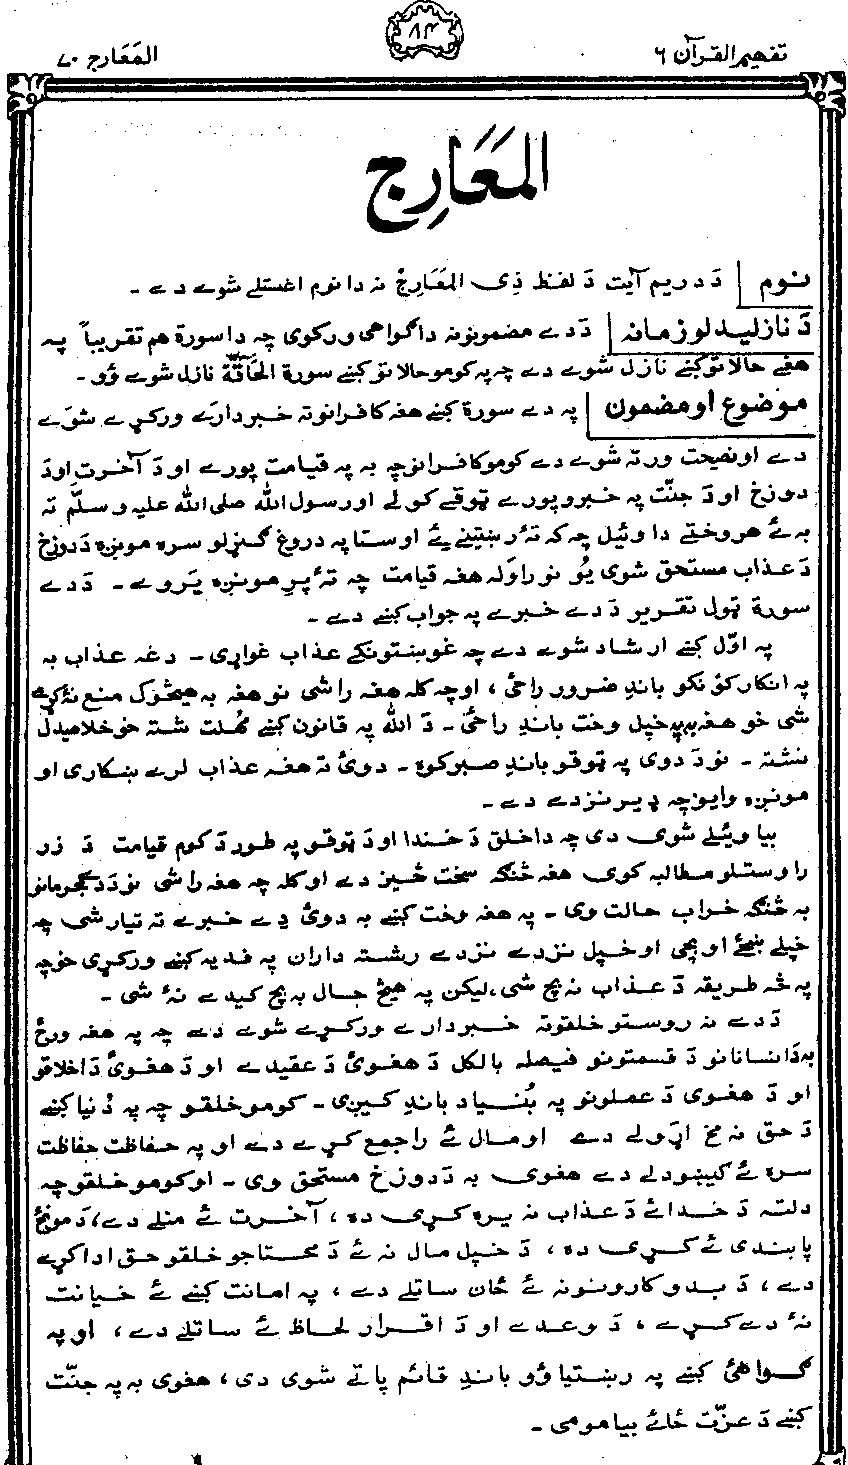 تفهیم القرآن ۶
۸۴
المَعَارِج ۷۰
المَعَارِج
نوم د دریم آیت دَ لفظ ذِی المَعَارِجْ نه دا نوم اغستلے شوے دے ۔
دَ نازلیدلو زمانه دَدے مضمونونه داگواهی ورکوی چه داسورة هم تقریباً په
هغے حالاتو کښے نازل شوے دے چه په کومو حالاتو کښے سورة الحَاقَّة نازل شوے ؤو ۔
موضوع او مضمون په دے سورة کښے هغه کافرانو ته خبردارے ورکړے شوے
دے او نصحت ورته شوے دے کومو کافرانو چه به په قیامت پورے او دَ آخرت او دَ
دوزخ او دَ جنّت په خبرو پورے ټوقے کولے اور رسول الله صلی الله علیه وسلّم ته
به ئے هر وختے دا وئیل چه که تهٔ رښتینے ئے او ستا په دروغ گنړلو سره مونږه دَ دوزخ
دَ عذاب مستحق شوی یُو نو راوَله هغه قیامت چه تهٔ پرِ مونږه یَروے ۔ دَدے
سورة ټول تقریر دَدے خبرے په جواب کښے دے ۔
په اوّل کښے ارشاد شوے دے چه غوښتونکے عذاب غواړی ۔ دغه عذاب به
په انکار کوُنکو باندِ ضرور راځی ، او چه کله هغه راشی نو هغه به هیڅوک منع نهٔ کړے
شی خو هغه به په خپل وخت باندِ راځی ۔ دَ الله په قانون کښے مُهلت شته خو خلاصیدل
نشته ۔ نو دَ دوی په ټوقو باندِ صبر کوه ۔ دوئ ته هغه عذاب لرے ښکاری او
مونږه وایو چه ډیر نزدے دے ۔
بیا ویئلے شوی دی چه داخلق دَ خندا او دَ ټوقو په طور دَ کوم قیامت دَ زر
راوستلو مطالبه کوی هغه څنگه سخت څیز دے او کله چه هغه راشی نو دَ دے مجرمانو
به څنگه خراب حالت وی ۔ په هغه وخت کښے به دوئ دِے خبرے ته تیار شی چه
خپلے ښځے او بچی او خپل نزدے نزدے رشته داران په فدیه کښے ورکړی خو چه
په څه طریقه دَ عذاب نه بچ شی ،لیکن په هیڅ حال به بچ کیدے نهٔ شی ۔
دَدے نه روستو خلقو ته خبردارے ورکړے شوے دے چه په هغه ورځ
به دَ انسانانو دَ قسمتونو فیصله بالکل دَ هغوئ دَ عقیدے او دَ هغوئ دَ اخلاقو
او دَ هغوی دَ عملونو په بُنیاد باندِ کیږی ۔ کومو خلقو چه په دُنیا کښے
دَ حق نه مخ اړولے دے او مال ئے راجمع کړے دے او په حفاظت حفاظت
سره ئے کیښودلے دے هغوی به دَ دوزخ مستحق وی ۔ او کومو خلقو چه
دلته دَ خدائے دَ عذاب نه یره کړی ده ، آخرت ئے منلے دے، دَ مونځ
پابندی ئے کړی ده ، دَ خپل مال نه ئے دَ محتاجو خلقو حق ادا کړے
دے ، دَ بدو کارونو نه ئے ځان ساتلے دے ، په امانت کښے ئے خیانت
نهٔ دے کړے ، دَ وعدے او دَ اقرار لحاظ ئے ساتلے دے ، او په
گواهئ کښے په رښتیاؤو باندِ قائم پاتے شوی دی ، هغوی به په جنّت
کښے دَ عزّت ځائے بیا مومی ۔